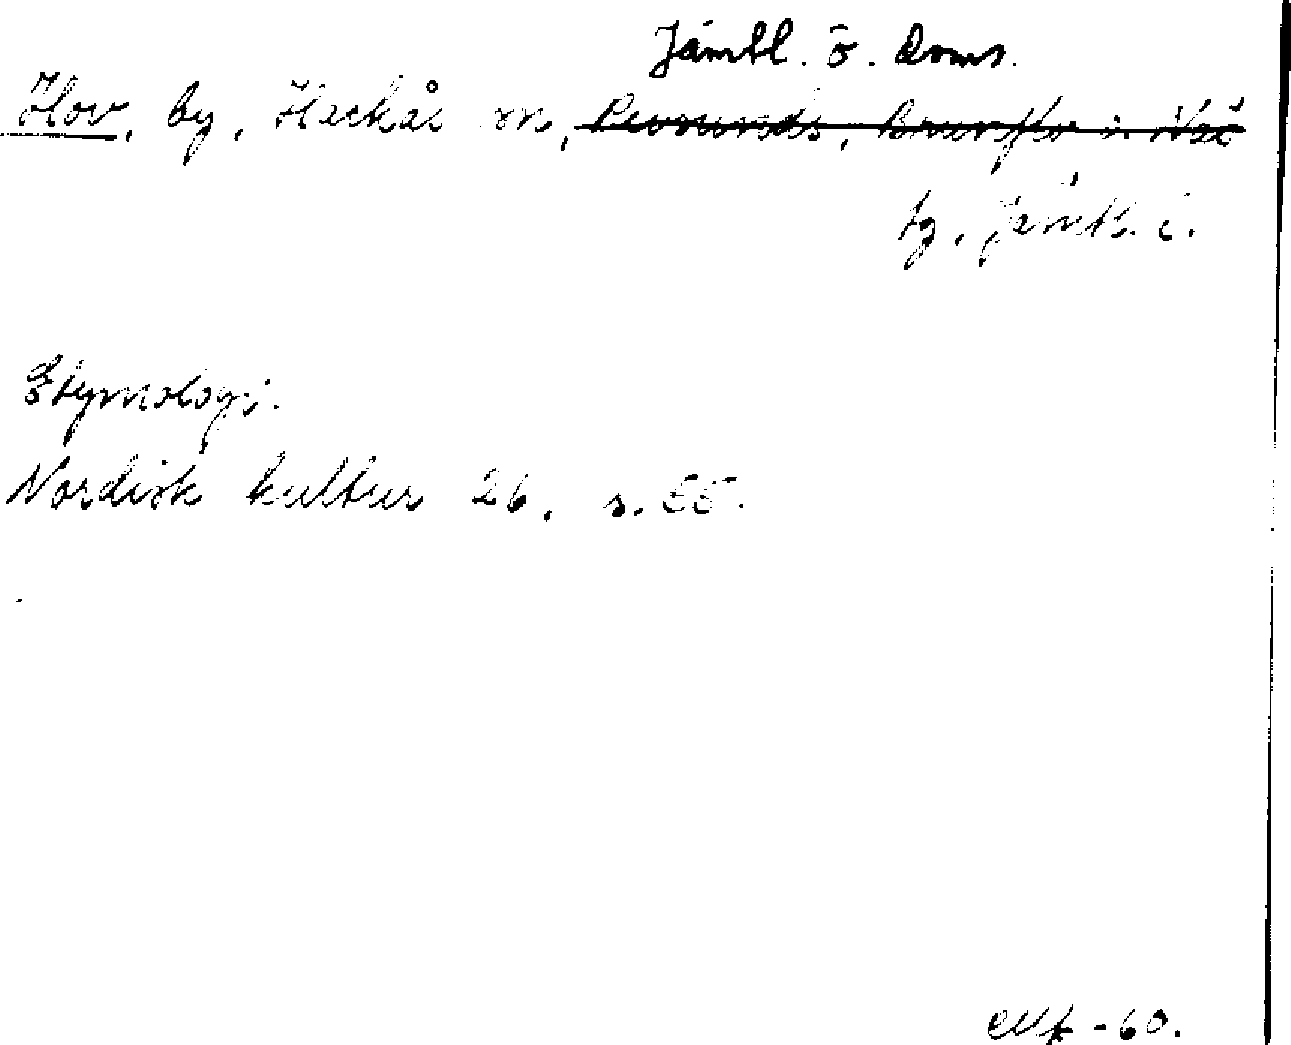 Jämtl. ö. Doms.
Hov, by, Hackås sn, Revsunds, Brunflo o. Näs
tg. Jämtl. l.
Etymologi.
Nordisk kultur 26, s. 55.
-60.